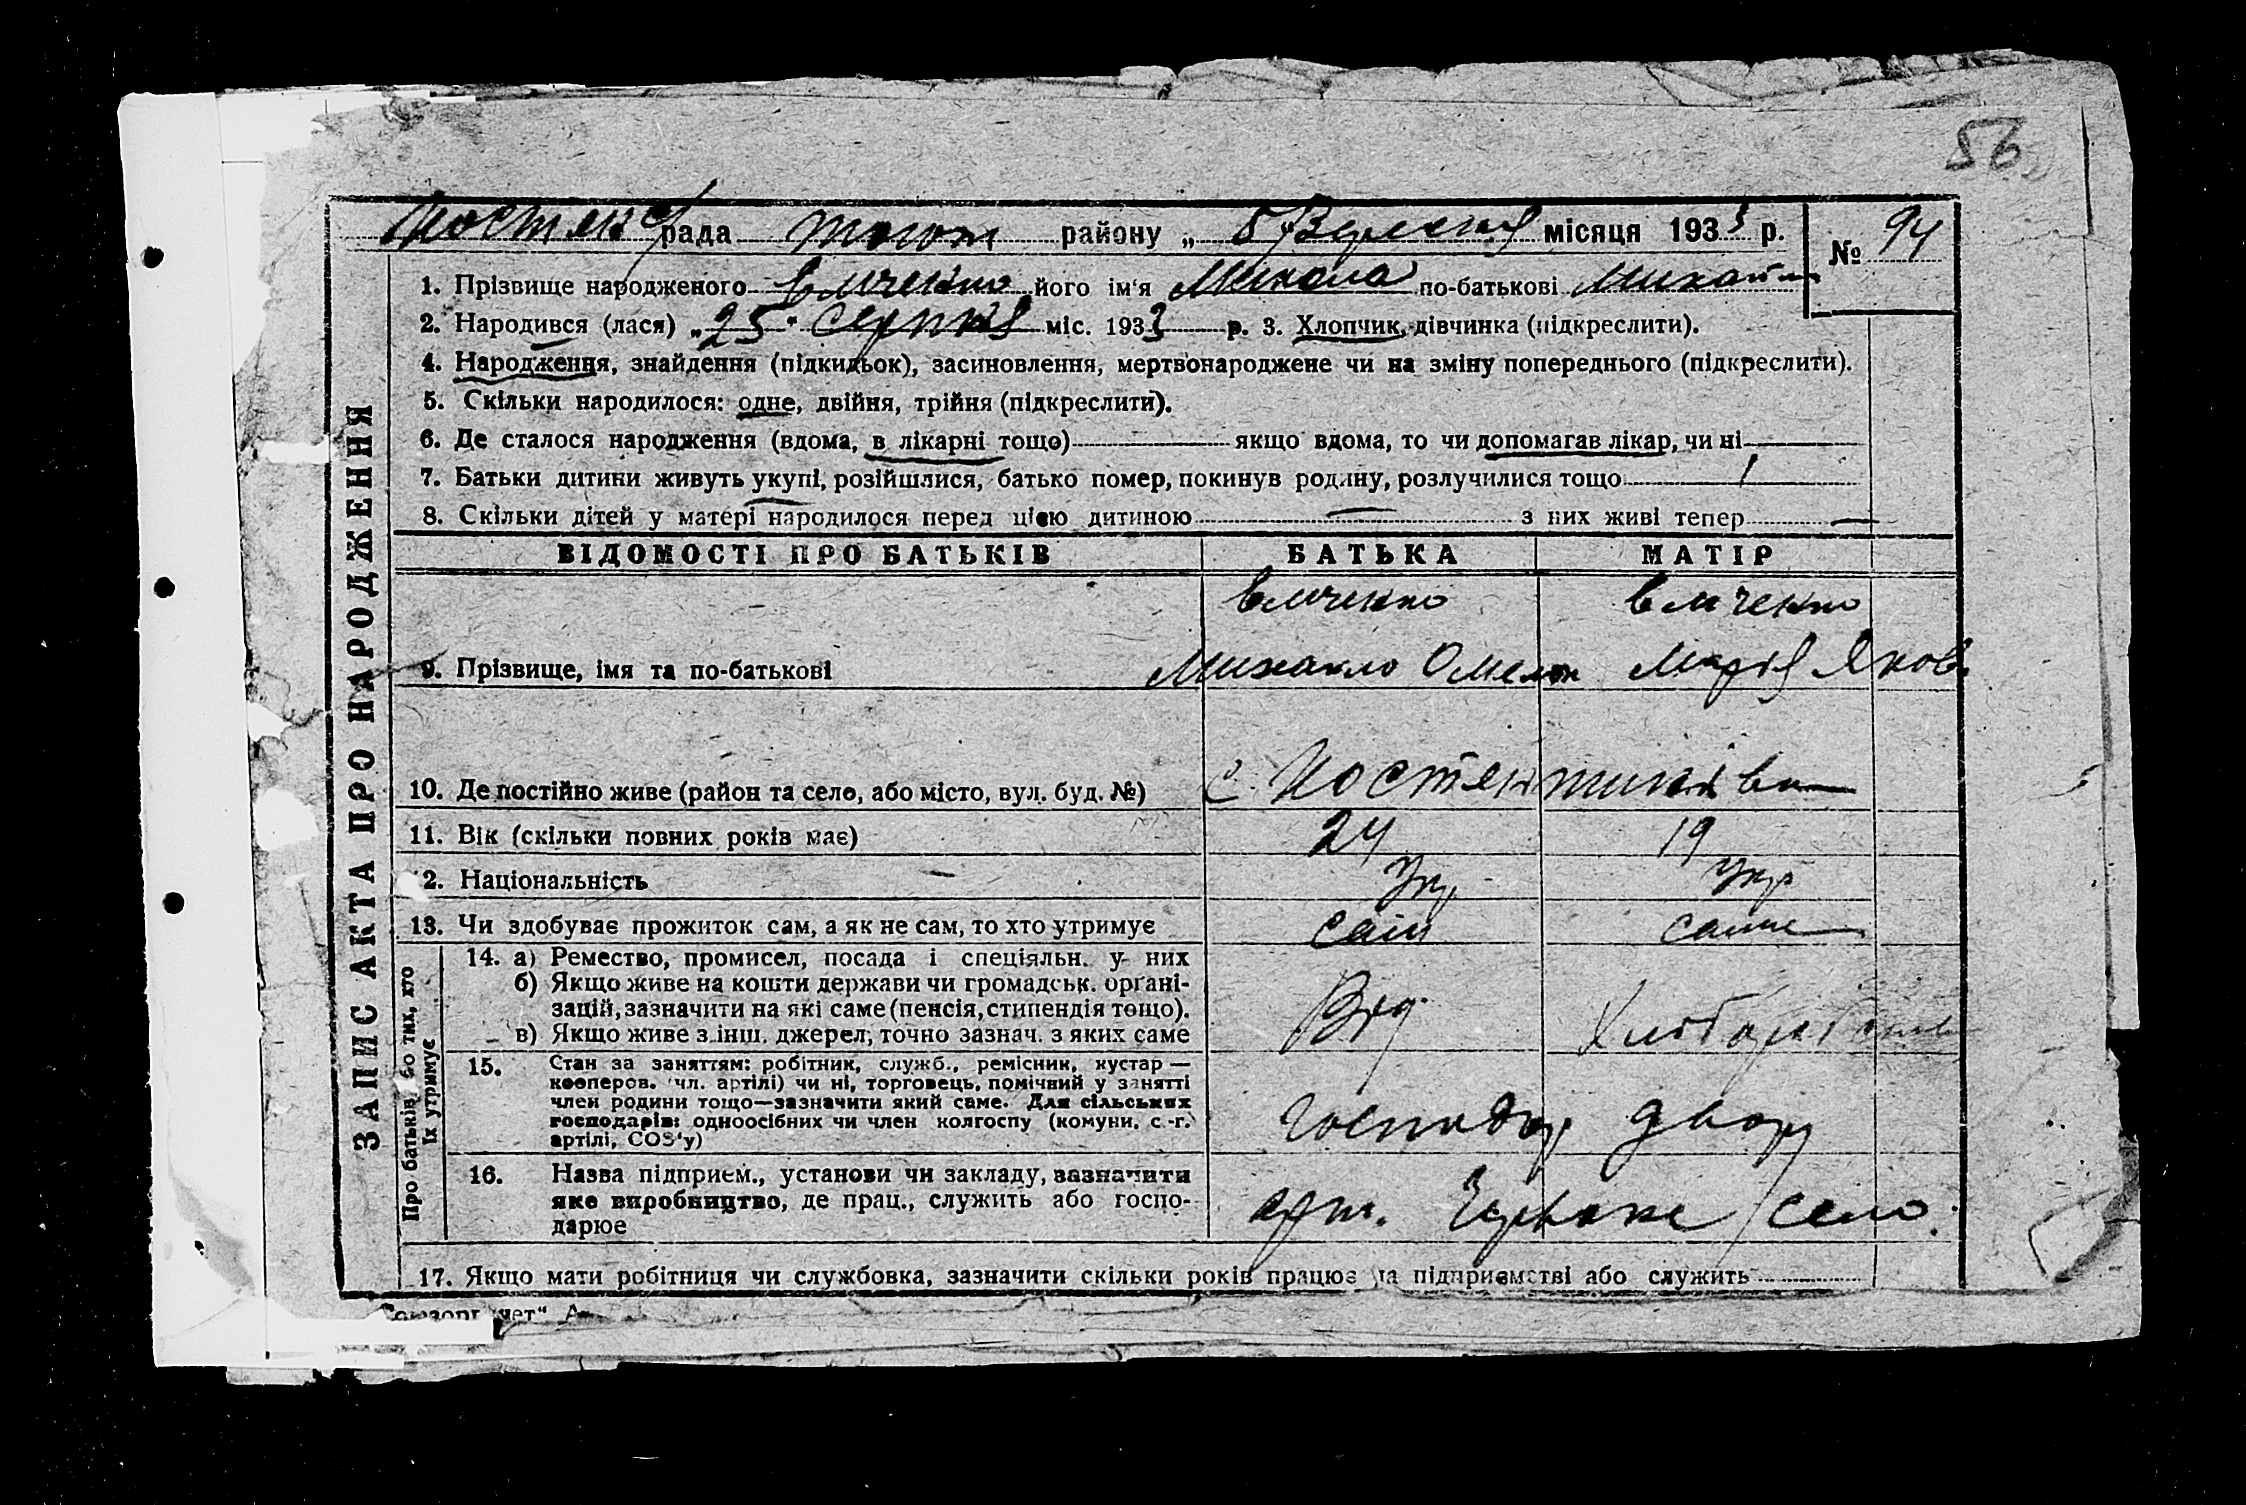 56
рада району „ 8 Вересня місяця 1933 р. № 94
1. Прізвище народженого його ім'я Микола по-батькові Михайл
2. Народився (лася) „25" Серпня міс. 1933 р. 3. Хлопчик, дівчинка (підкреслити).
4. Народження, знайдення (підкидьок), засиновлення, мертвонароджене чи на зміну попереднього (підкреслити).
5. Скільки народилося: одне, двійня, трійня (підкреслити).
6. Де сталося народження (вдома, в лікарні тощо) якщо вдома, то чи допомагав лікар, чи ні
7. Батьки дитини живуть укупі, розійшлися, батько помер, покинув родину, розлучилися тощо
8. Скільки дітей у матері народилося перед цією дитиною — з них живі тепер —
ЗАПИС АКТА ПРО НАРОДЖЕННЯ
ВІДОМОСТІ ПРО БАТЬКІВ БАТЬКА МАТІР
9. Прізвище, імя та по-батькові Михайло Омелян Марія Яков
10. Де постійно живе (район та село, або місто, вул. буд. №) с. Костянтинівка
11. Вік (скільки повних років має) 24 19
2. Національність Укр Укр
13. Чи здобуває прожиток сам, а як не сам, то хто утримує сам саме
Про батьків, бо тих, хто
їх утримує
14. а) Ремество, промисел, посада і спеціяльн. у них
б) Якщо живе на кошти держави чи громадськ. орґані-
зацій, зазначити на які саме (пенсія, стипендія тощо).
в) Якщо живе з інш. джерел, точно зазнач. з яких саме
15. Стан за заняттям: робітник, служб., ремісник, кустар —
кооперов. (чл. артілі) чи ні, торговець, помічний у занятті
член родини тощо—зазначити який саме. Для сільських
господарів: одноосібних чи член колгоспу (комуни, с.-г.
артілі, СОЗ'у)
господар двору
16. Назва підприєм., установи чи закладу, зазначити
яке виробництво, де прац., служить або госпо-
дарює
арт. Червоне село.
17. Якщо мати робітниця чи службовка, зазначити скільки років працює на підприємстві або служить